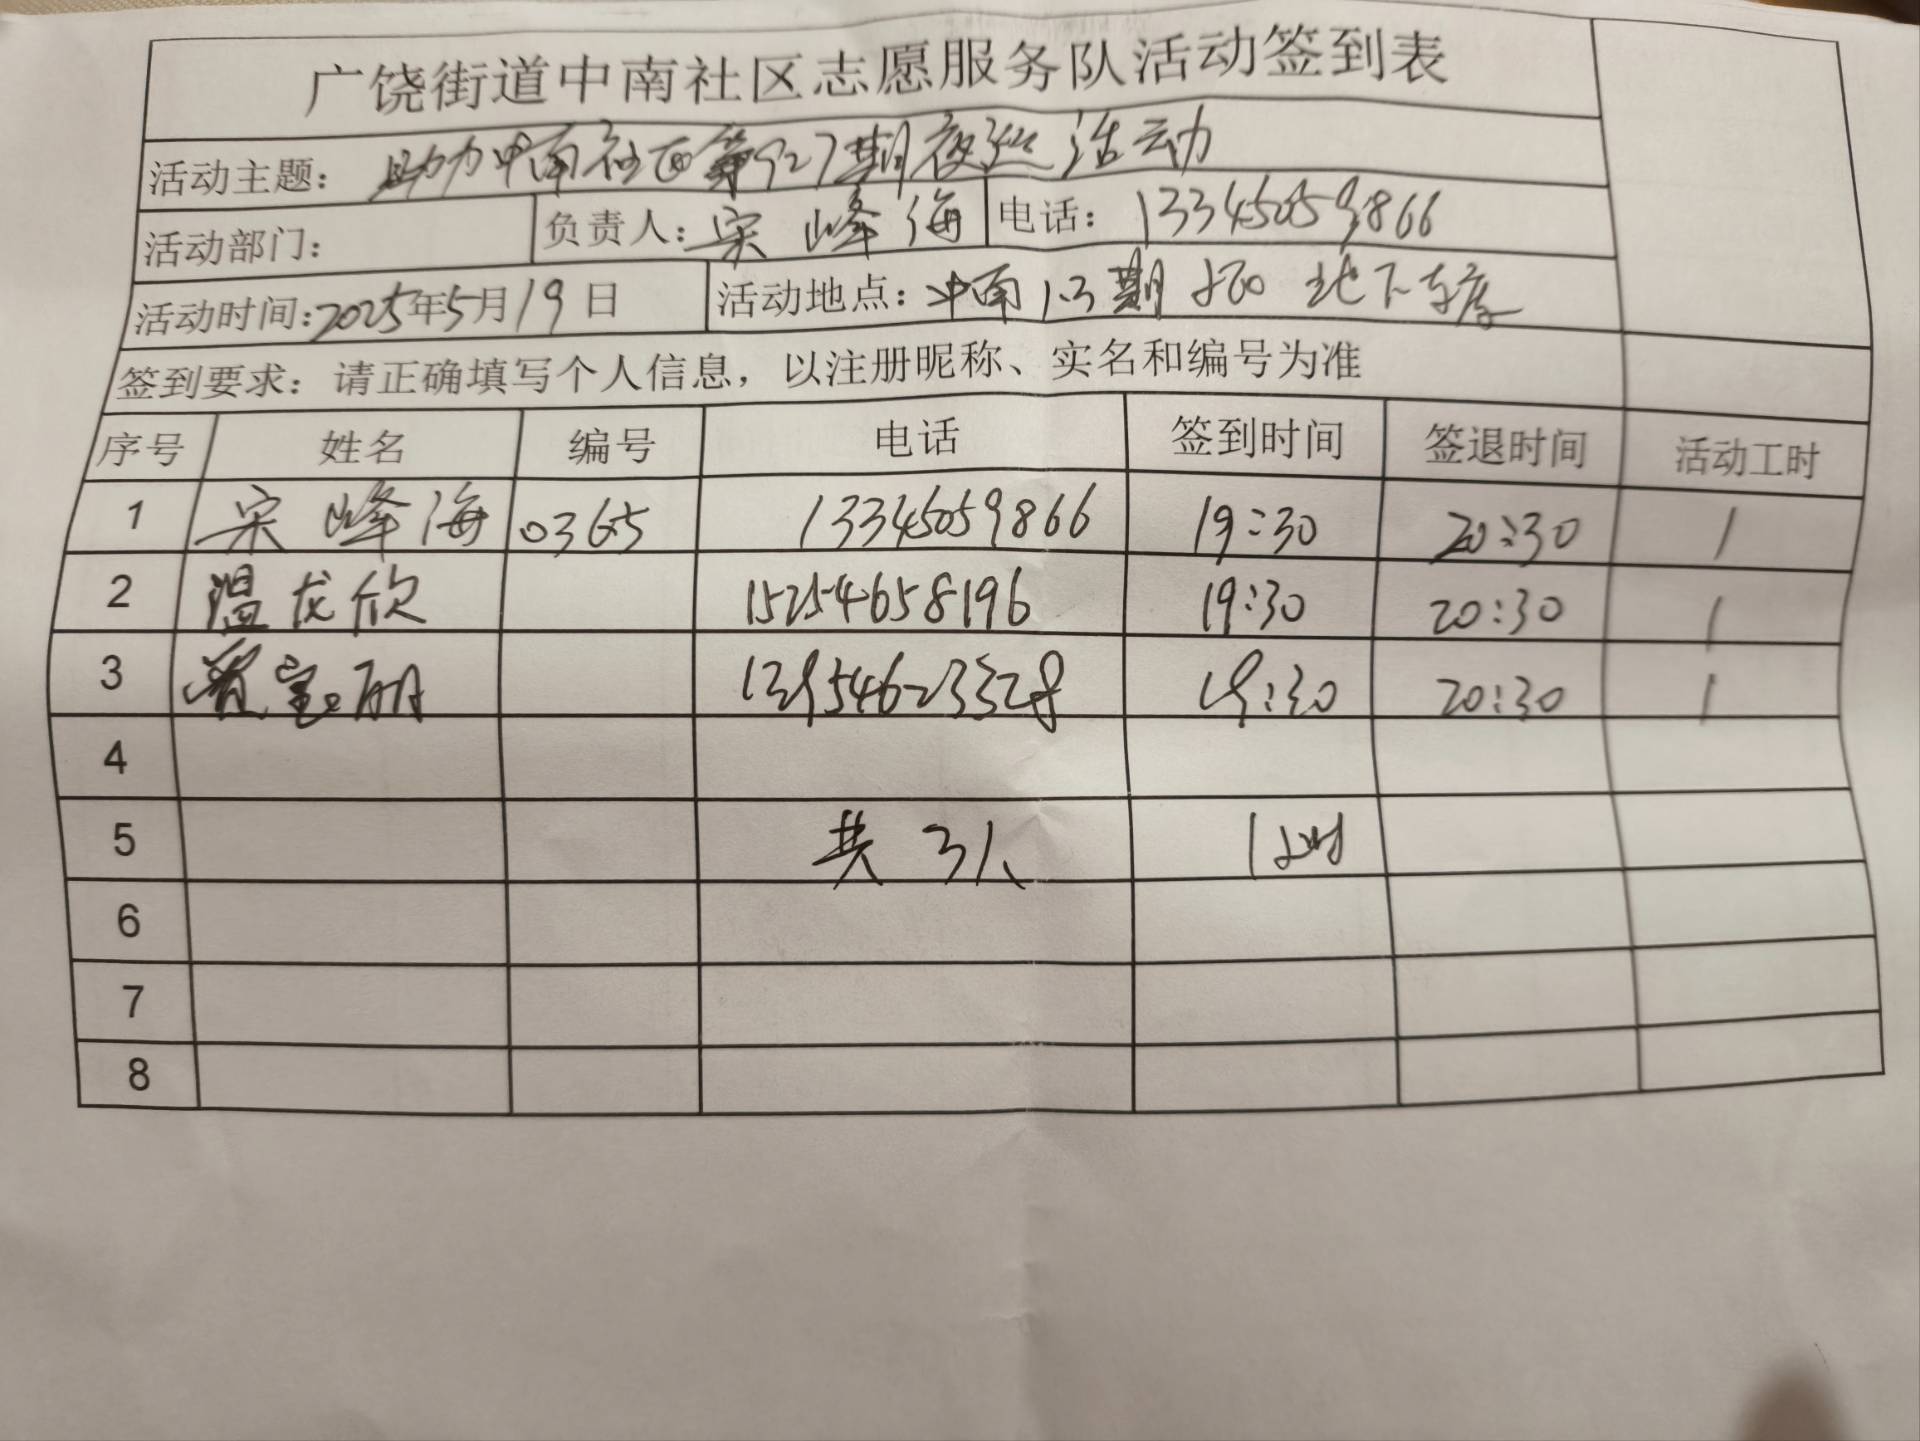 广饶街道中南社区志愿服务队活动签到表
活动主题： 助力中南社区第927期夜巡活动
活动部门： 负责人：宋峰海 电话：13345059866
活动时间：2025年5月19日 活动地点：中南1.3期 地下车库
签到要求：请正确填写个人信息，以注册昵称、实名和编号为准
序号 姓名 编号 电话 签到时间 签退时间 活动工时
1 宋峰海 0365 13345059866 19:30 20:30 1
2 温龙欣 15254658196 19:30 20:30 1
3 13954623328 19:30 20:30 1
4
5 共3人 1小时
6
7
8